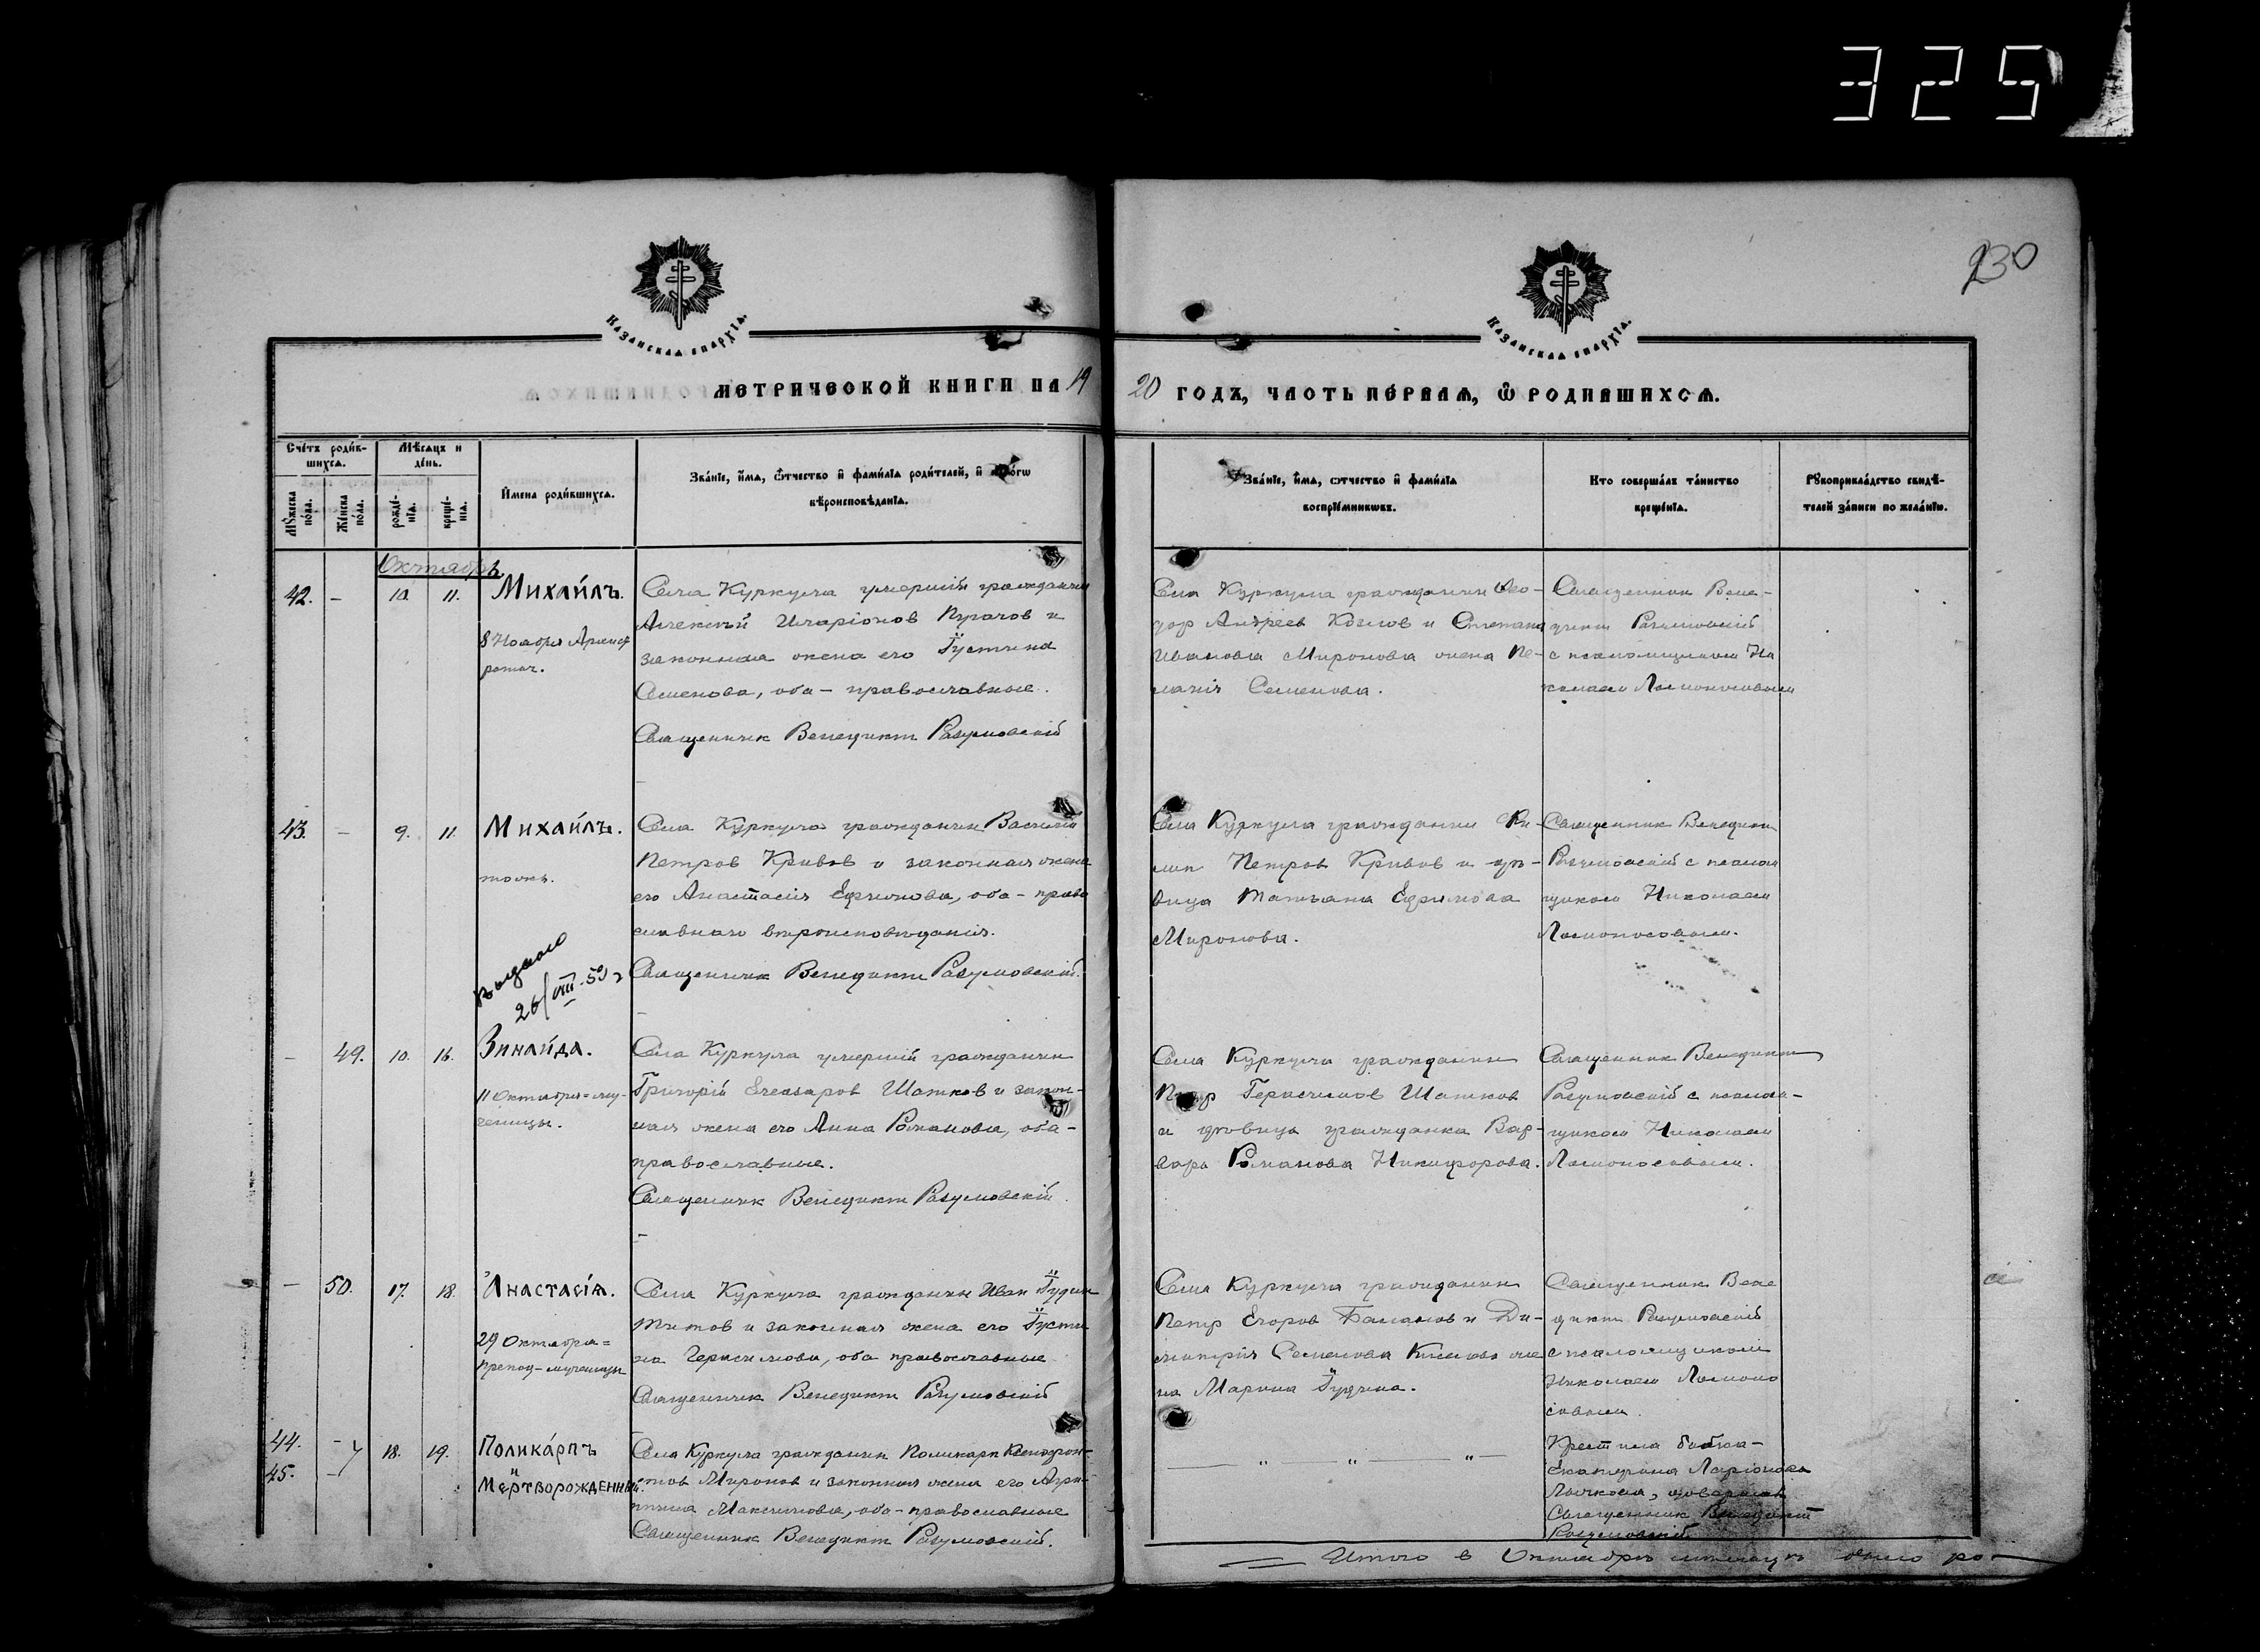 325
230
Казанская епархїа.
Казанская епархїа.
МЕТРИЧЕСКОЙ КНИГИ НА 19
20 ГОДЪ, ЧАСТЬ ПЕ́РВАѦ, Ѡ҆ РОДИВШИХСѦ.
Сче́тъ роди́в-
шихсѧ.
Мѣ́сяцъ и
де́нь.
Мꙋ́жеска
по́ла.
Же́нска
по́ла.
рожде́-
нїѧ.
креще́-
нїѧ.
И҆мена роди́вшихсѧ.
Зва́нїе, и҆́мѧ, ѻ҆́тчество и҆ фами́лїѧ роди́телей, и҆
вѣ̀роисповѣ́данїѧ.
Зва́нїе, и҆́мѧ, ѻ҆́тчество и҆ фами́лїѧ
воспрїе́мникѡвъ.
Кто соверша́лъ та́инство
креще́нїѧ.
Рꙋкоприкла́дство свидѣ́-
телей за́писи по жела́нїю.
Октябрь
42. — 10. 11. Михаи́лъ.
8 Ноября Архист
ратиг.
Села Куркула умерший гражданин
Алексѣй Иларіонов Пугачов и
законная жена его Їустина
Семенова, оба - православные.
Священник Венедикт Разумовскій
Села Куркула гражданин Ѳео-
дор Андреев Козлов и Степанида
Ивановна Миронова жена Пе-
лагія Семенова.
Священник Вене-
дикт Разумовскій
с псаломщиком Ни
колаем Ломоносовым
43. — 9. 11. Михаи́лъ.
тоже.
выдано
26/VIII-59 г
Села Куркула гражданин Василій
Петров Кривов и законная жена
его Анастасія Ефимова, оба - право
славнаго вѣроисповѣданія.
Священник Венедикт Разумовскій.
Села Куркула гражданин Фи-
лип Петров Кривов и дѣ-
вица Татьяна Ефимова
Миронова.
Священник Венедикт
Разумовскій с псалом
щиком Николаем
Ломоносовым.
— 49. 10. 16. Зинаи́да.
11 Октября = му-
ченицы.
Села Куркула умерший гражданин
Григорій Елеазаров Шатков и закон-
ная жена его Анна Романова, оба -
православные.
Священник Венедикт Разумовскій
Села Куркула гражданин
Петр Герасимов Шатков
и дѣвица гражданка Вар-
вара Романова Никифорова.
Священник Венедикт
Разумовскій с псалом-
щиком Николаем
Ломоносовым.
— 50. 17. 18. Анастасі́ѧ.
29 Октября =
препод-мученицы
Села Куркула гражданин Иван Їудин
Титов и законная жена его Їусти
на Герасимова, оба православные
Священник Венедикт Разумовскій
Села Куркула гражданин
Петр Егоров Баланов и Ди-
митрія Семенова Киселева же
на Марина Їудина.
Священник Вене
дикт Разумовскій
с псаломщиком
Николаем Ломоно
совым.
44. — 18. 19. Полика́рпъ
45. — Мёртворожденный.
Села Куркула гражданин Поликарп Ксенофон-
тов Миронов и законная жена его Агри-
пина Максимова, оба - православные
Священник Венедикт Разумовскій.
— „ — „ — „ —
Крестила бабка -
Екатерина Ларіонова
Лычкова, довершал
Священник Венедикт
Разумовскій
Итого в Октябрѣ мѣсяцѣ было ро-